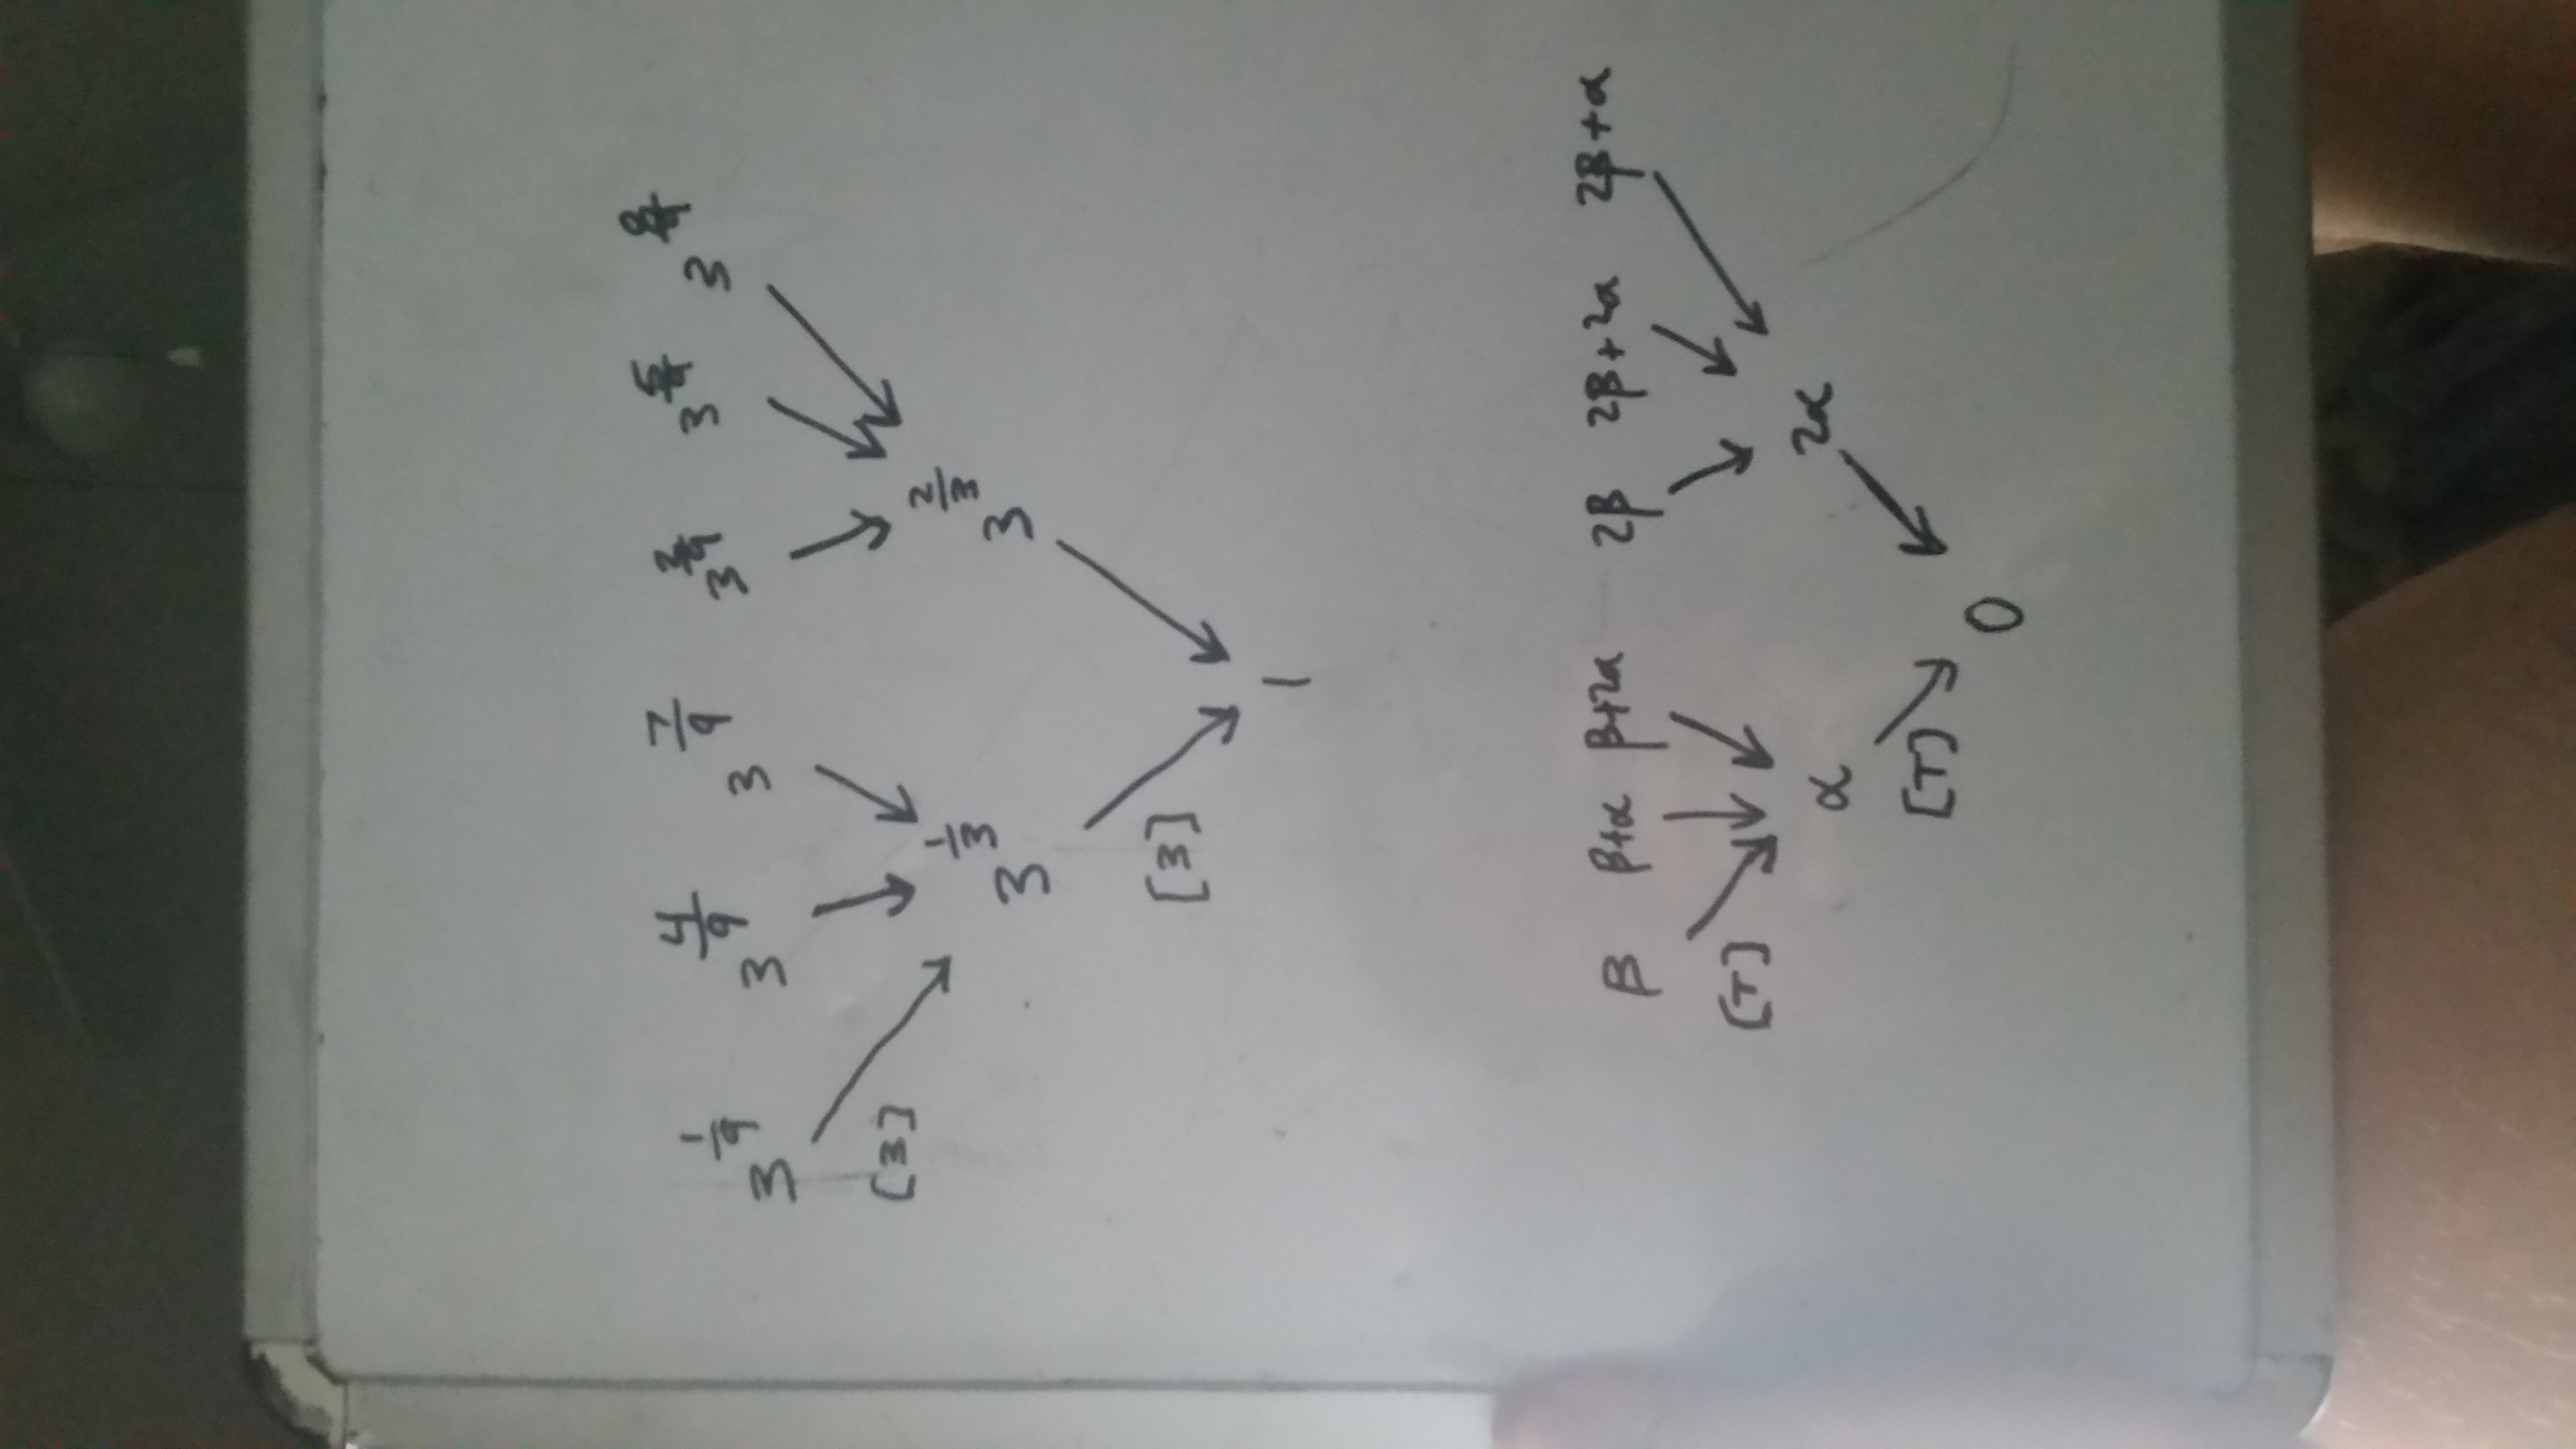 3^(1/9) 3^(4/9) 3^(7/9) 3^(2/9) 3^(5/9) 3^(8/9)
[3]
3^(1/3) 3^(2/3)
[3]
1
β β+α β+2α 2β 2β+2α 2β+α
[T]
α 2α
[T]
0